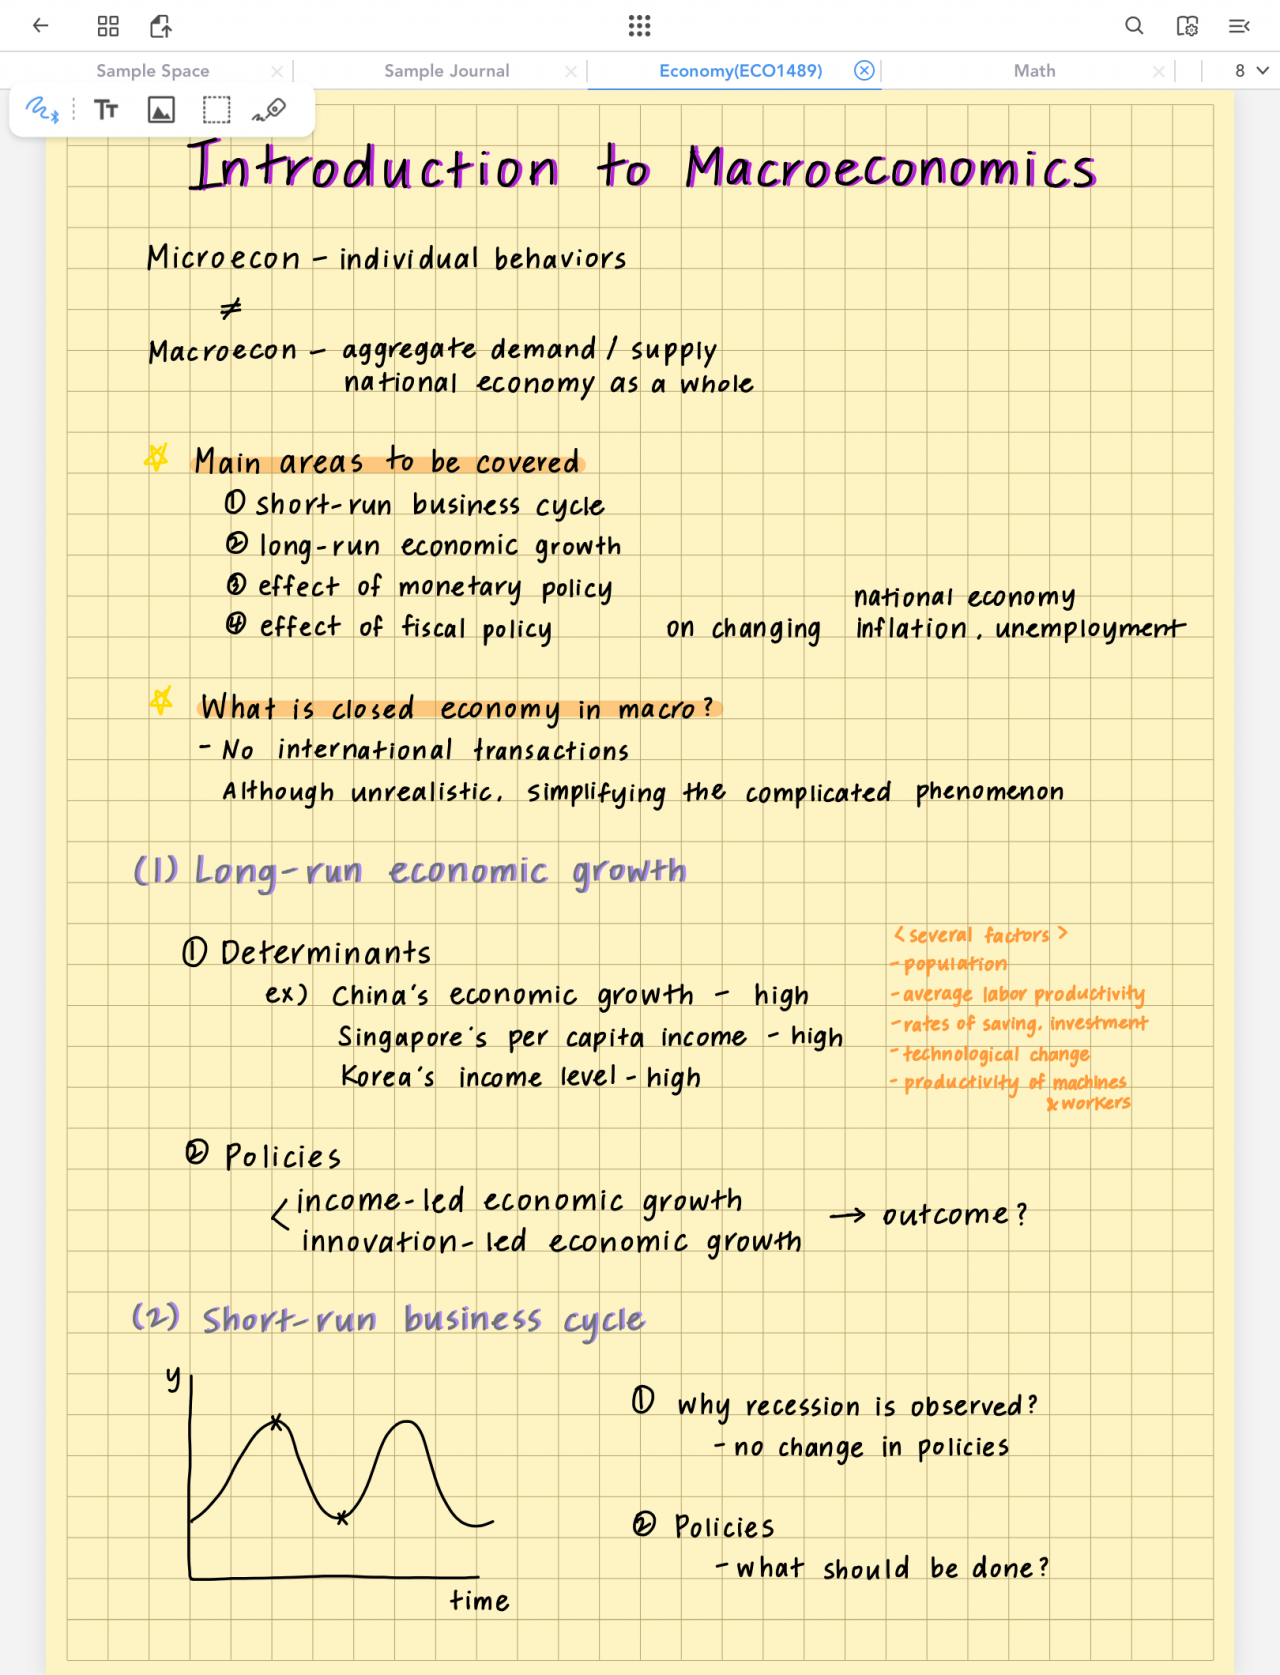 Sample Space
Sample Journal
Economy(ECO1489)
Math
8
Tт
Introduction to Macroeconomics
Microecon – individual behaviors
≠
Macroecon – aggregate demand / supply
national economy as a whole
Main areas to be covered
① short-run business cycle
② long-run economic growth
③ effect of monetary policy
④ effect of fiscal policy
on changing
national economy
inflation, unemployment
What is closed economy in macro?
- No international transactions
Although unrealistic, simplifying the complicated phenomenon
(1) Long-run economic growth
① Determinants
ex) China's economic growth - high
Singapore's per capita income - high
Korea's income level - high
<several factors>
- population
- average labor productivity
- rates of saving, investment
- technological change
- productivity of machines
& workers
② Policies
< income-led economic growth
innovation-led economic growth
→ outcome?
(2) Short-run business cycle
y
time
① why recession is observed?
- no change in policies
② Policies
- what should be done?